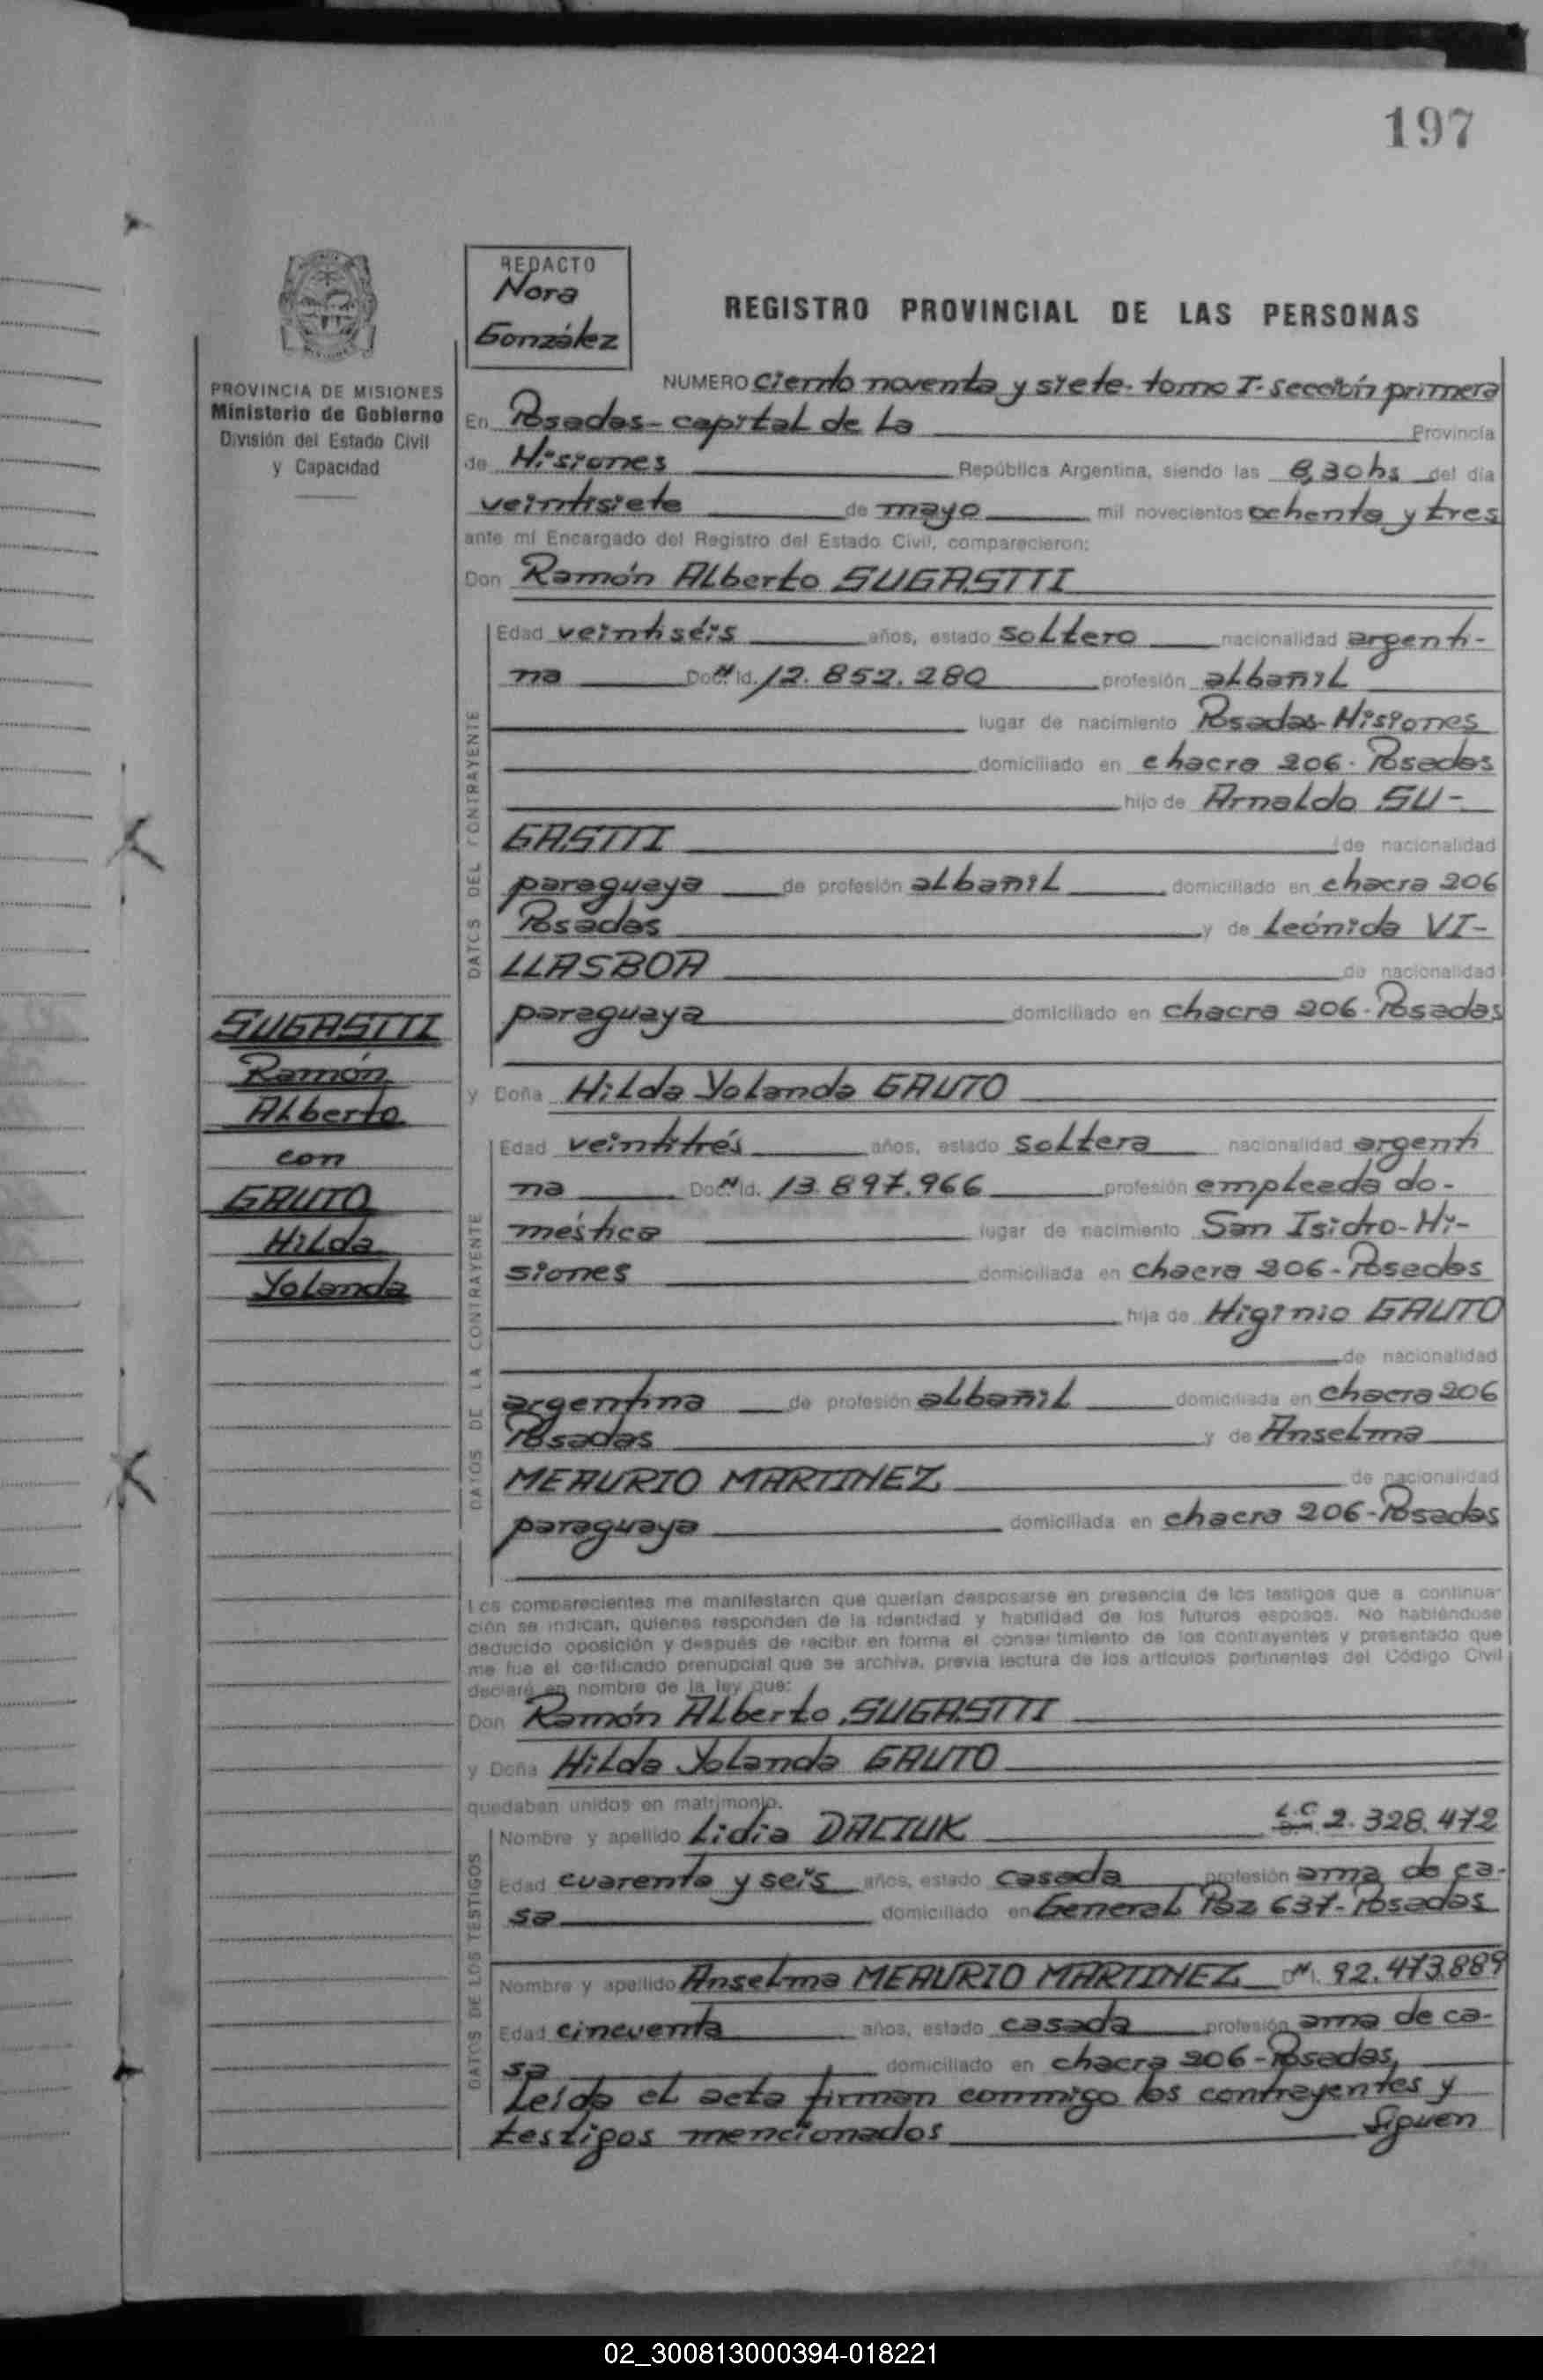 197
REDACTO
Nora
González
REGISTRO PROVINCIAL DE LAS PERSONAS
PROVINCIA DE MISIONES
Ministerio de Gobierno
División del Estado Civil
y Capacidad
NUMERO Ciento noventa y siete- tomo I- sección primera
En Posadas- capital de La Provincia
de Misiones República Argentina, siendo las 8,30hs del día
veintisiete de mayo mil novecientos ochenta y tres
ante mí Encargado del Registro del Estado Civil, comparecieron:
Don Ramón Alberto SUGASTTI
DATOS DEL CONTRAYENTE
Edad veintiséis años, estado soltero nacionalidad argenti-
na Doc. Id. 12.852.280 profesión albañil
lugar de nacimiento Posadas-Misiones
domiciliado en chacra 206- Posadas
hijo de Arnaldo SU-
GASTTI de nacionalidad
paraguaya de profesión albañil domiciliado en chacra 206
Posadas y de Leónida VI-
LLASBOA de nacionalidad
paraguaya domiciliado en chacra 206-Posadas
SUGASTTI
Ramón
Alberto
con
GAUTO
Hilda
Yolanda
y Doña Hilda Yolanda GAUTO
DATOS DE LA CONTRAYENTE
Edad veintitrés años, estado soltera nacionalidad argenti
na Doc. Id. 13.897.966 profesión empleada do-
méstica lugar de nacimiento San Isidro-Mi-
siones domiciliada en chacra 206-Posadas
hija de Higinio GAUTO
de nacionalidad
argentina de profesión albañil domiciliada en chacra 206
Posadas y de Anselma
MEAURIO MARTINEZ de nacionalidad
paraguaya domiciliada en chacra 206-Posadas
Los comparecientes me manifestaron que querían desposarse en presencia de los testigos que a continua-
ción se indican, quienes responden de la identidad y habilidad de los futuros esposos. No habiéndose
deducido oposición y después de recibir en forma el consentimiento de los contrayentes y presentado que
me fue el certificado prenupcial que se archiva, previa lectura de los artículos pertinentes del Código Civil
declaré en nombre de la ley que:
Don Ramón Alberto SUGASTTI
y Doña Hilda Yolanda GAUTO
quedaban unidos en matrimonio.
DATOS DE LOS TESTIGOS
Nombre y apellido Lidia DACIUK L.C 2.328.472
Edad cuarenta y seis años, estado casada profesión ama de ca-
sa domiciliado en General Paz 637-Posadas
Nombre y apellido Anselma MEAURIO MARTINEZ 92.473.889
Edad cincuenta años, estado casada profesión ama de ca-
sa domiciliado en chacra 206-Posadas,
Leída el acta firman conmigo los contrayentes y
testigos mencionados Siguen
02_300813000394-018221